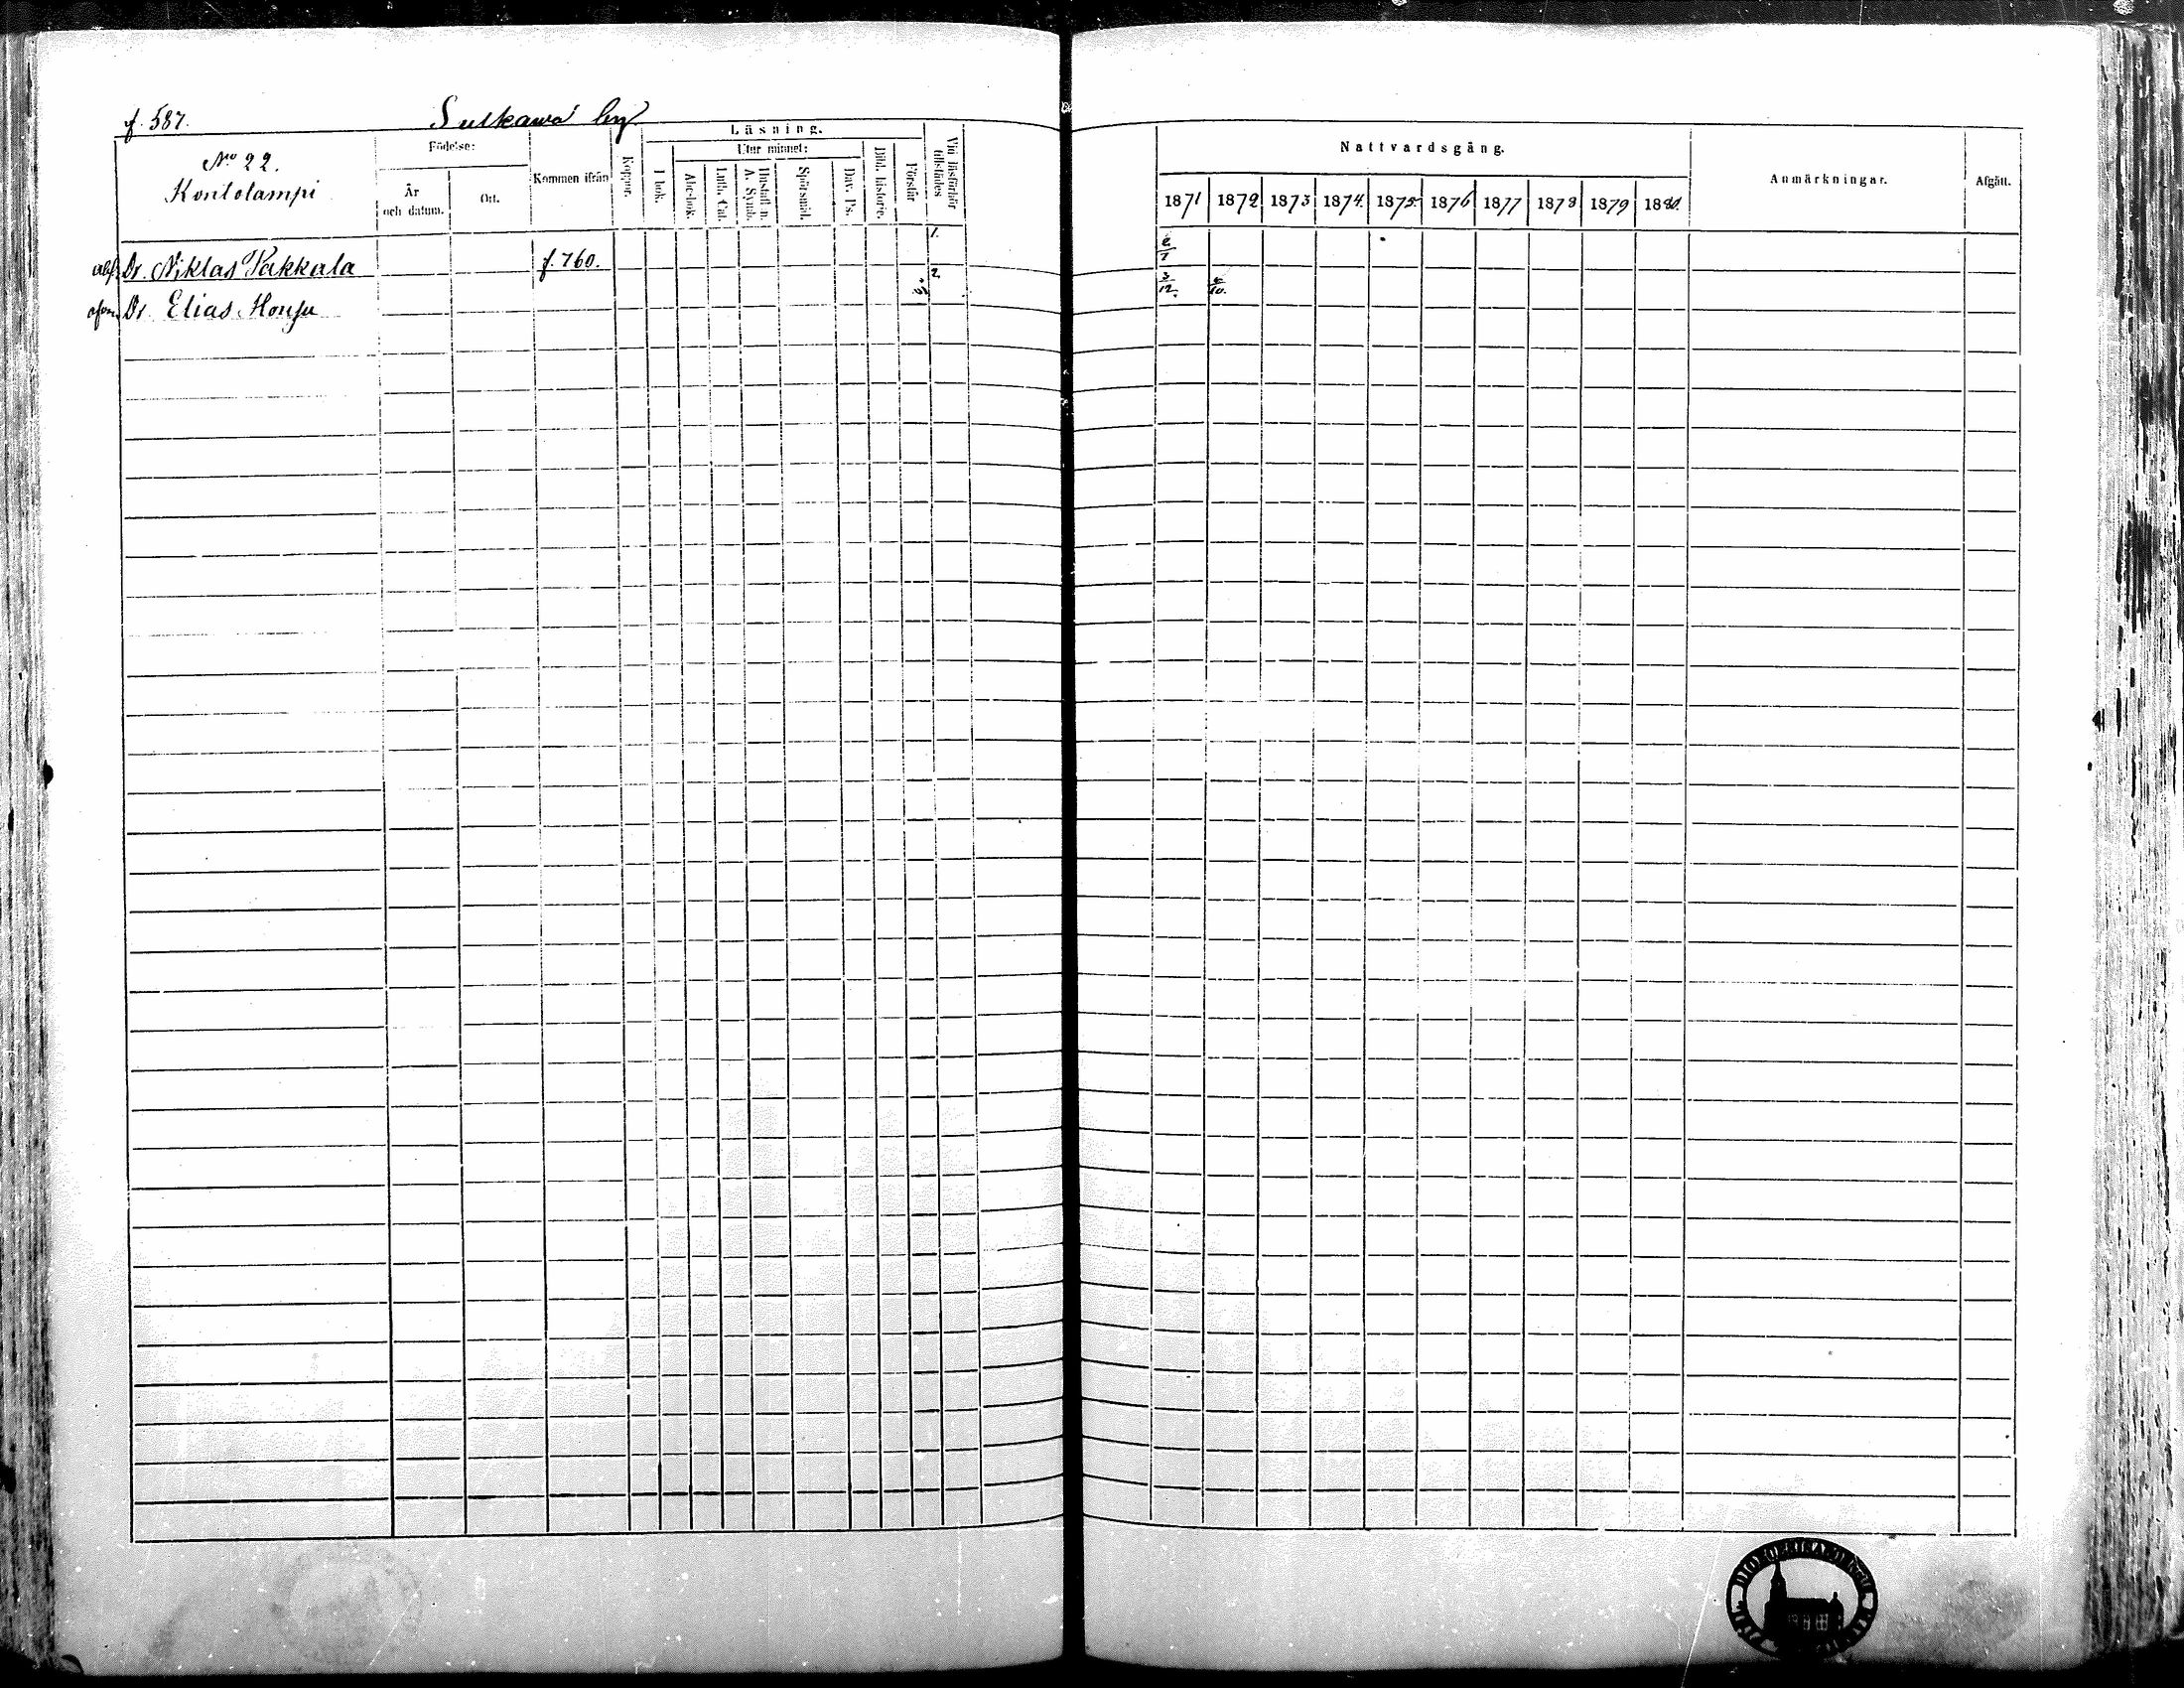 f. 587.
Sulkawa by
No 22.
Kontolampi
Födelse:
År
och datum.
Ort.
Kommen ifrån
Koppor.
Läsning.
I bok.
Utur minnet:
Abc-bok.
Luth. Cat.
Hustafl. o.
A. Symb.
Spörsmål.
Dav. Ps.
Bibl. historie.
Förstår
Vid läsförhör
tillstädes
Nattvardsgång.
1871 1872 1873 1874 1875 1876 1877 1878 1879 1880
Anmärkningar.
Afgått.
Dr. Niklas Pakkala f. 760. 1.
Dr Elias 2. 3/12.